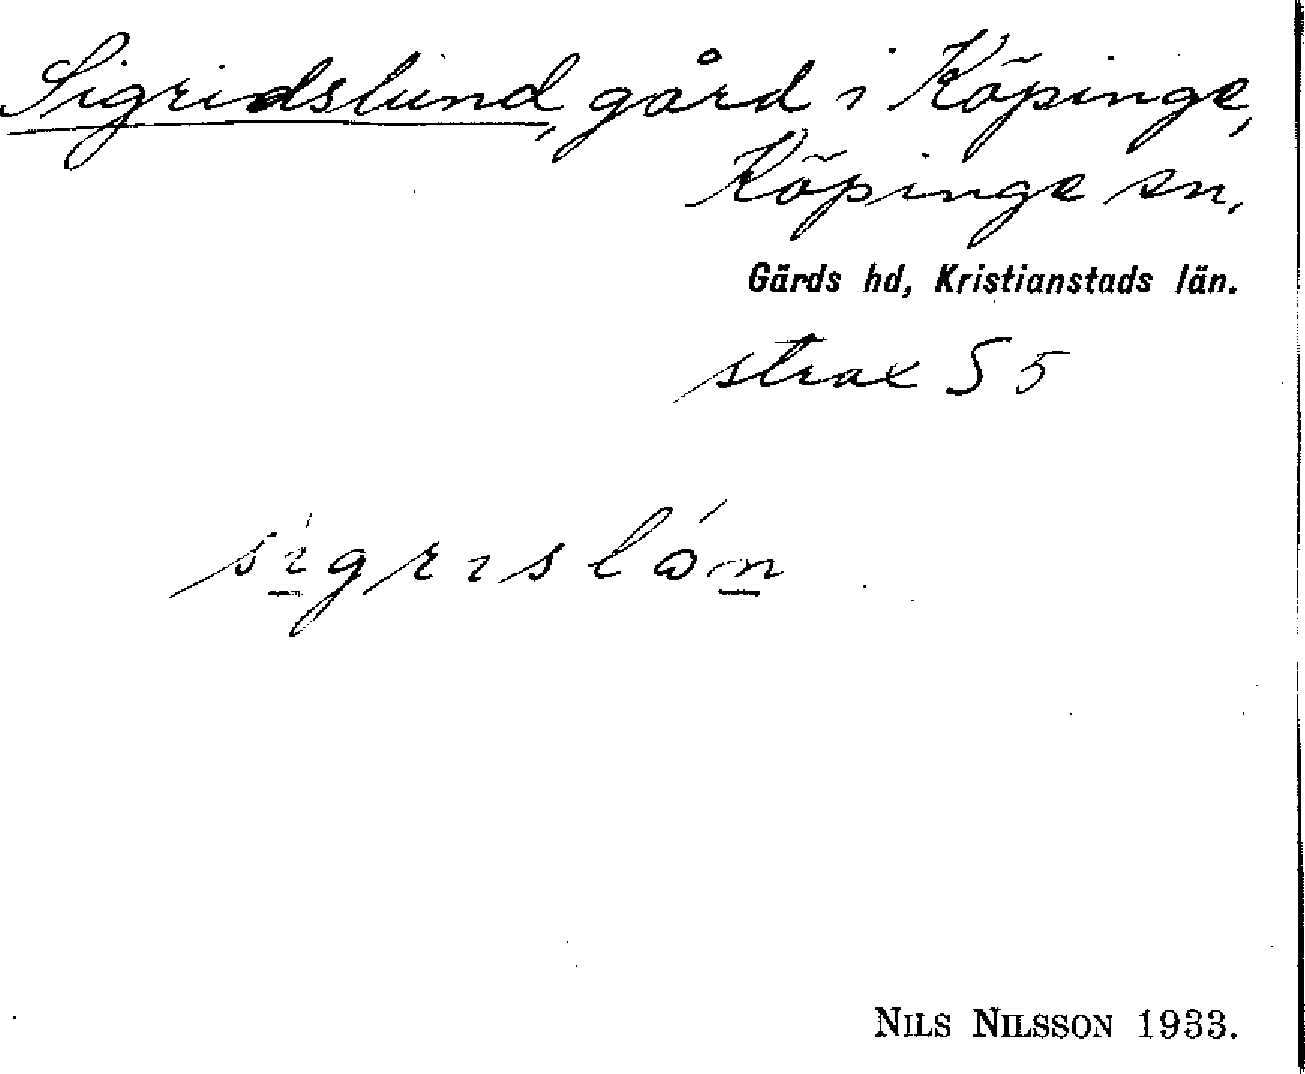 Sigridslund, gård i Köpinge,
Köpinge sn,
Gärds hd, Kristianstads län.
strax S 5
sígrislón
NILS NILSSON 1933.